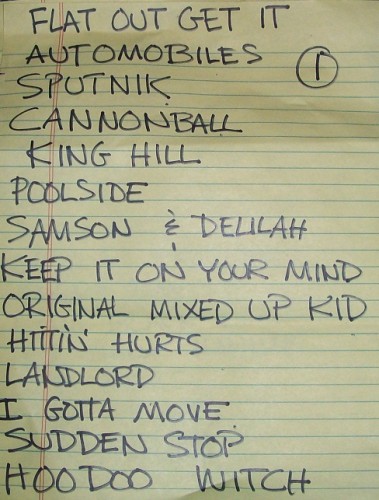 FLAT OUT GET IT
AUTOMOBILES
1
SPUTNIK
CANNONBALL
KING HILL
POOLSIDE
SAMSON & DELILAH
KEEP IT ON YOUR MIND
ORIGINAL MIXED UP KID
HITTIN' HURTS
LANDLORD
I GOTTA MOVE
SUDDEN STOP
HOODOO WITCH